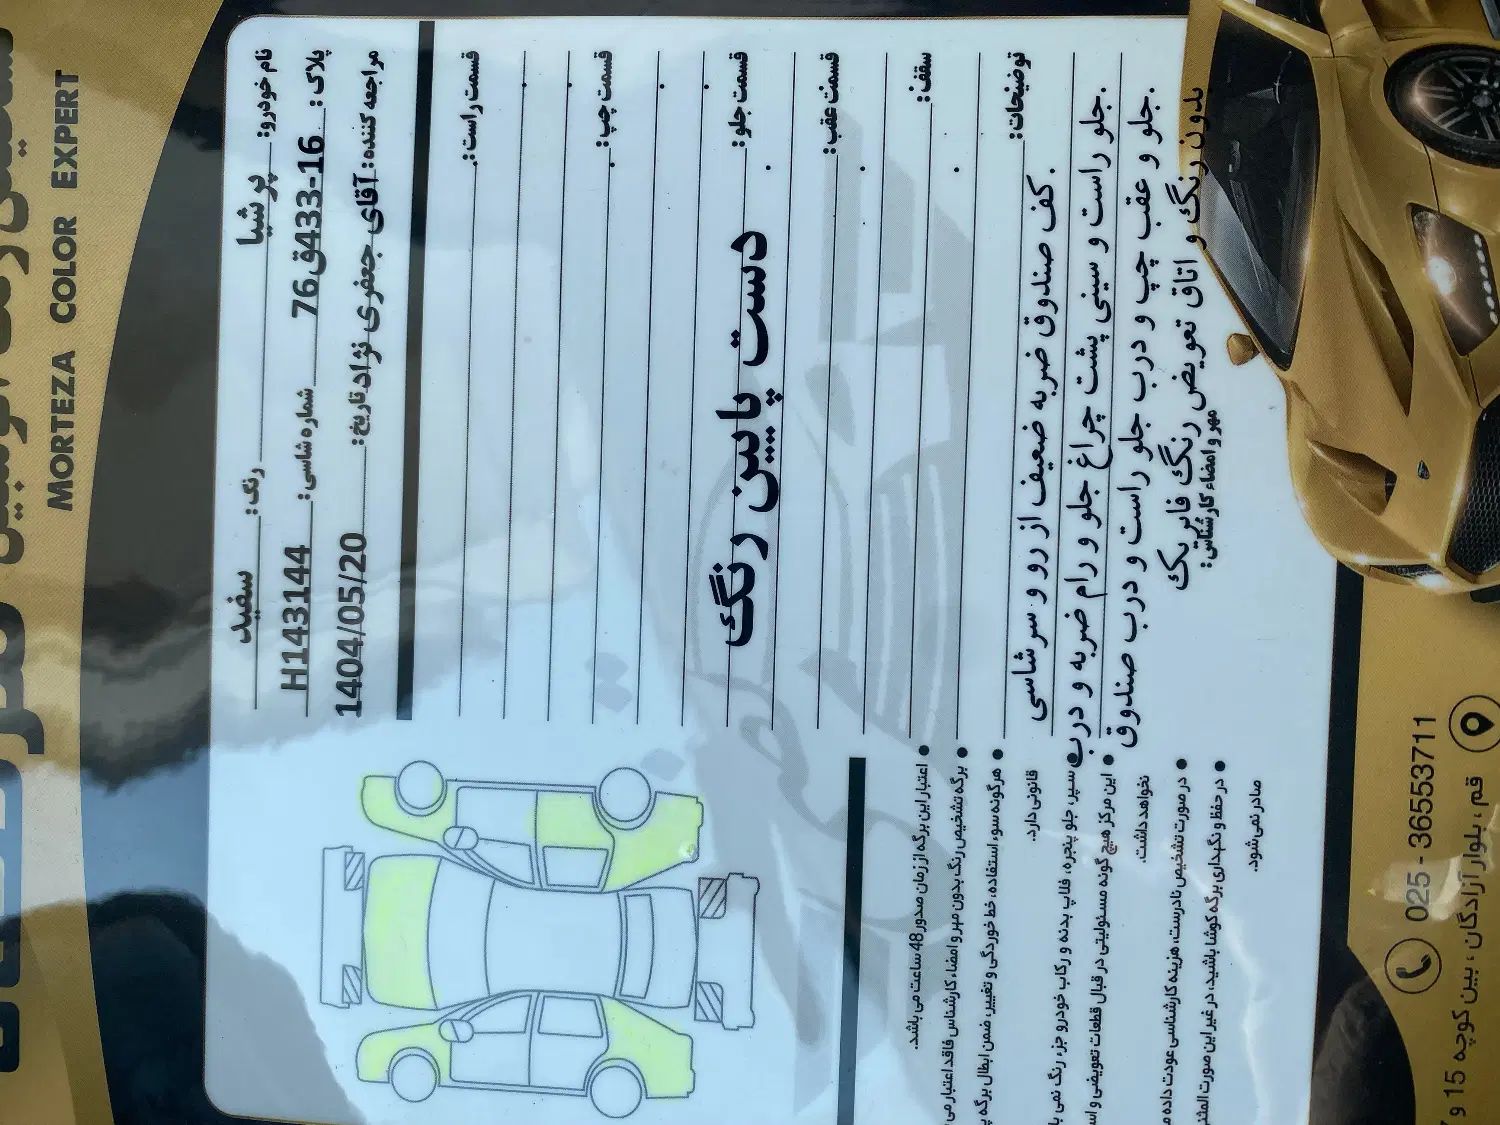 MORTEZA COLOR EXPERT
نام خودرو: پرشیا رنگ: سفید
پلاک: 16-433ق76 شماره شاسی: H143144
مراجعه کننده: آقای جعفری نژاد تاریخ: 1404/05/20
قسمت راست:
قسمت چپ:
قسمت جلو:
دست پایین رنگ
قسمت عقب:
سقف:
توضیحات:
.کف صندوق ضربه ضعیف از رو و سر شاسی
.جلو راست و سینی پشت چراغ جلو و رام ضربه و درب
.جلو و عقب چپ و درب جلو راست و درب صندوق
بدون رنگ و اتاق تعویض رنگ فابریک
مهر و امضاء کارشناس:
● اعتبار این برگه از زمان صدور 48 ساعت می باشد.
● برگه تشخیص رنگ بدون مهر و امضاء کارشناس فاقد اعتبار می
● هرگونه سوء استفاده، خط خوردگی و تغییر، ضمن ابطال برگه
قانونی دارد.
● سپر، جلو پنجره، قلاب بدنه و رکاب خودرو جزء رنگ نمی
● این مرکز هیچ گونه مسئولیتی در قبال قطعات تعویضی و
نخواهد داشت.
● در صورت تشخیص نادرست، هزینه کارشناسی عودت داده
● در حفظ و نگهداری برگه کوشا باشید، در غیر این صورت
صادر نمی شود.
025 - 36553711
قم ، بلوار آزادگان ، بین کوچه 15 و